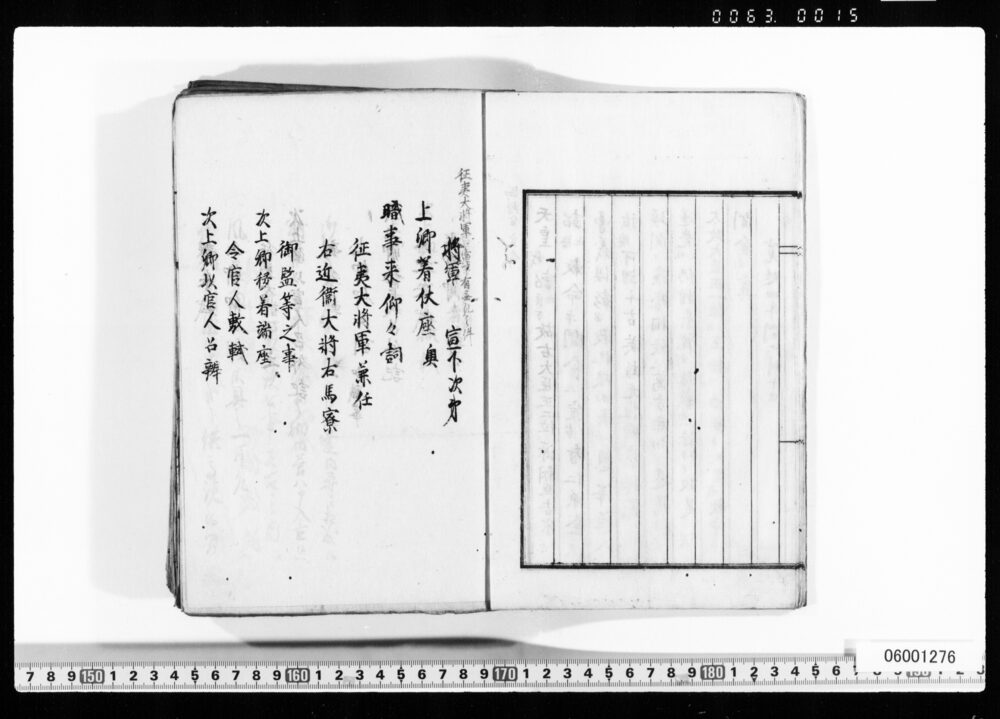 0063. 0015
征夷大将軍
將軍 宣下次才
上卿着仗座奥
職事来仰々詞
征夷大將軍兼任
右近衞大將右馬寮
御監等之事
次上卿移着端座
令官人敷軾
次上卿以官人召辨
7 8 9 150 1 2 3 4 5 6 7 8 9 160 1 2 3 4 5 6 7 8 9 170 1 2 3 4 5 6 7 8 9 180 1 2 3 4 5 6 7
06001276